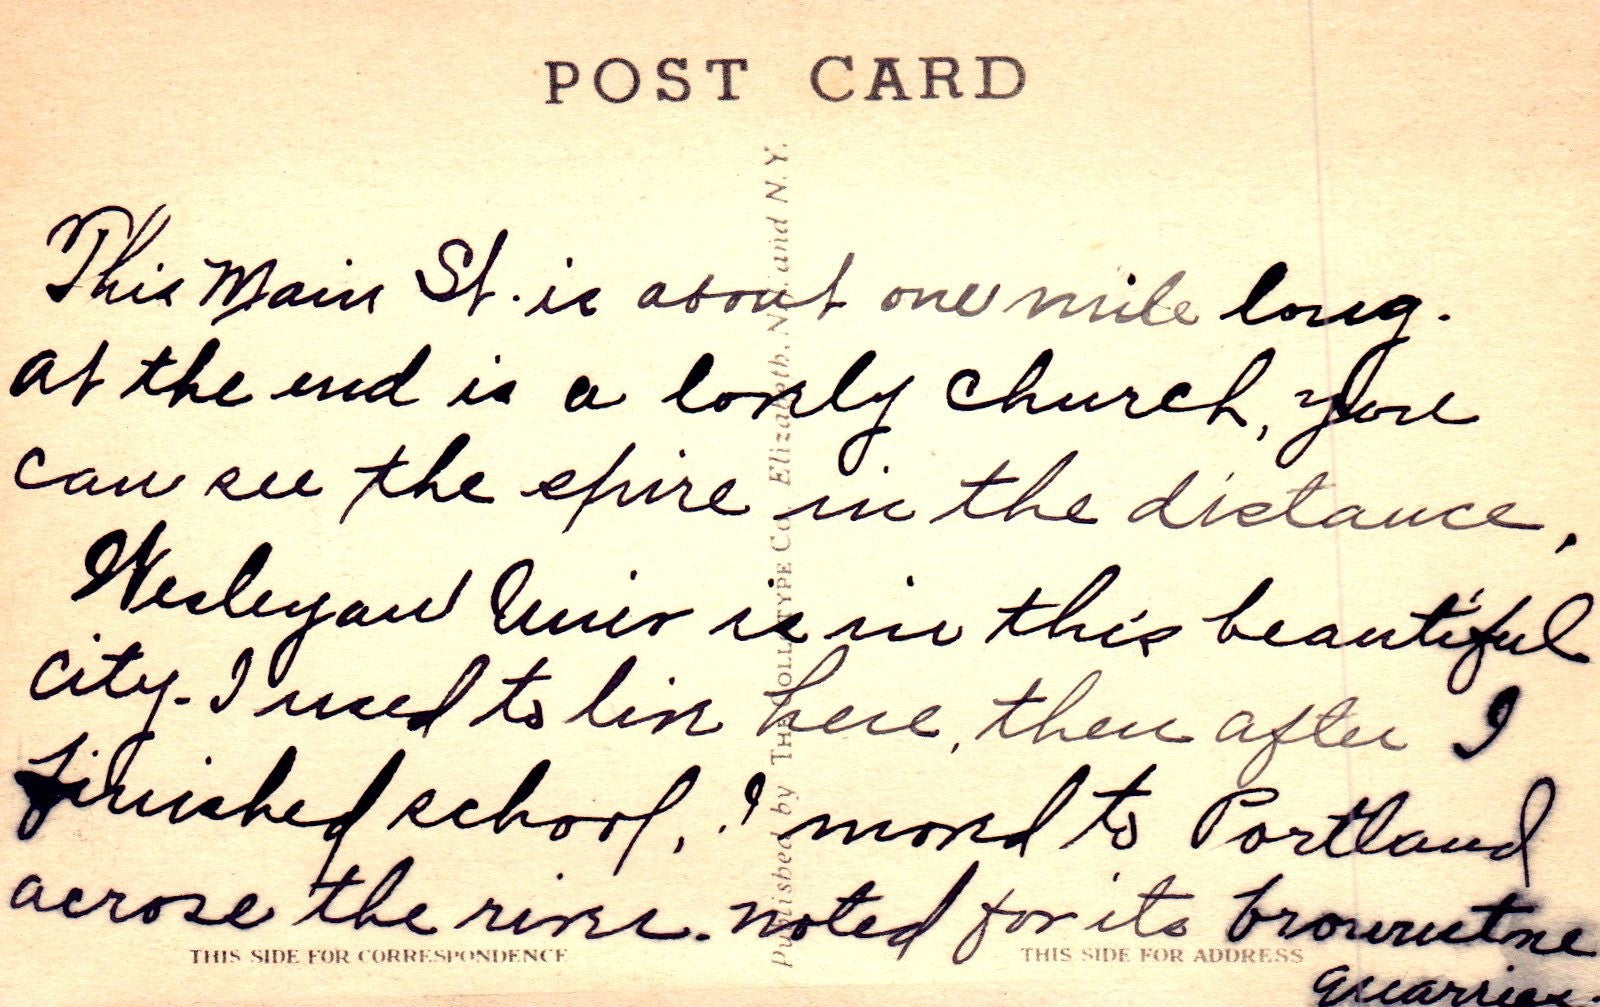 POST CARD
This Main St. is about one mile long.
At the end is a lovely church, you
can see the spire in the distance,
Wesleyan Univ is in this beautiful
city. I used to live here, then after I
finished school, I moved to Portland
across the river. noted for its brownstone
quarries.
THIS SIDE FOR CORRESPONDENCE
THIS SIDE FOR ADDRESS
Published by THE COLLOTYPE CO., Elizabeth, N.J. and N.Y.